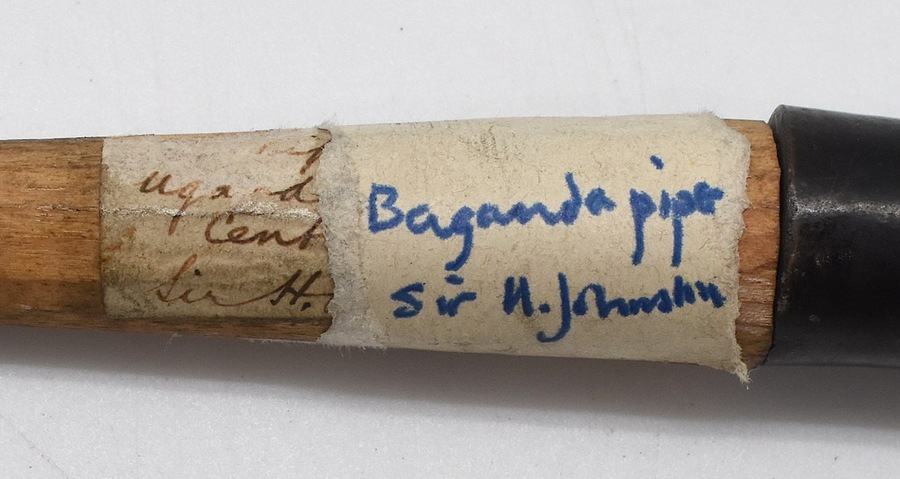 Ugand
Cent
Sir H.
Baganda pipe
Sir H. Johnston